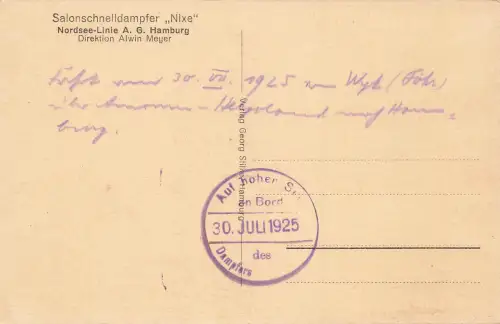 Salonschnelldampfer „Nixe“
Nordsee-Linie A. G. Hamburg
Direktion Alwin Meyer
am 30. VII. 1925 von Wyk (Föhr)
über Amrum - Helgoland nach Ham-
burg.
Verlag Georg Hamburg
Auf hoher
an Bord
30. JULI 1925
des
Dampfers